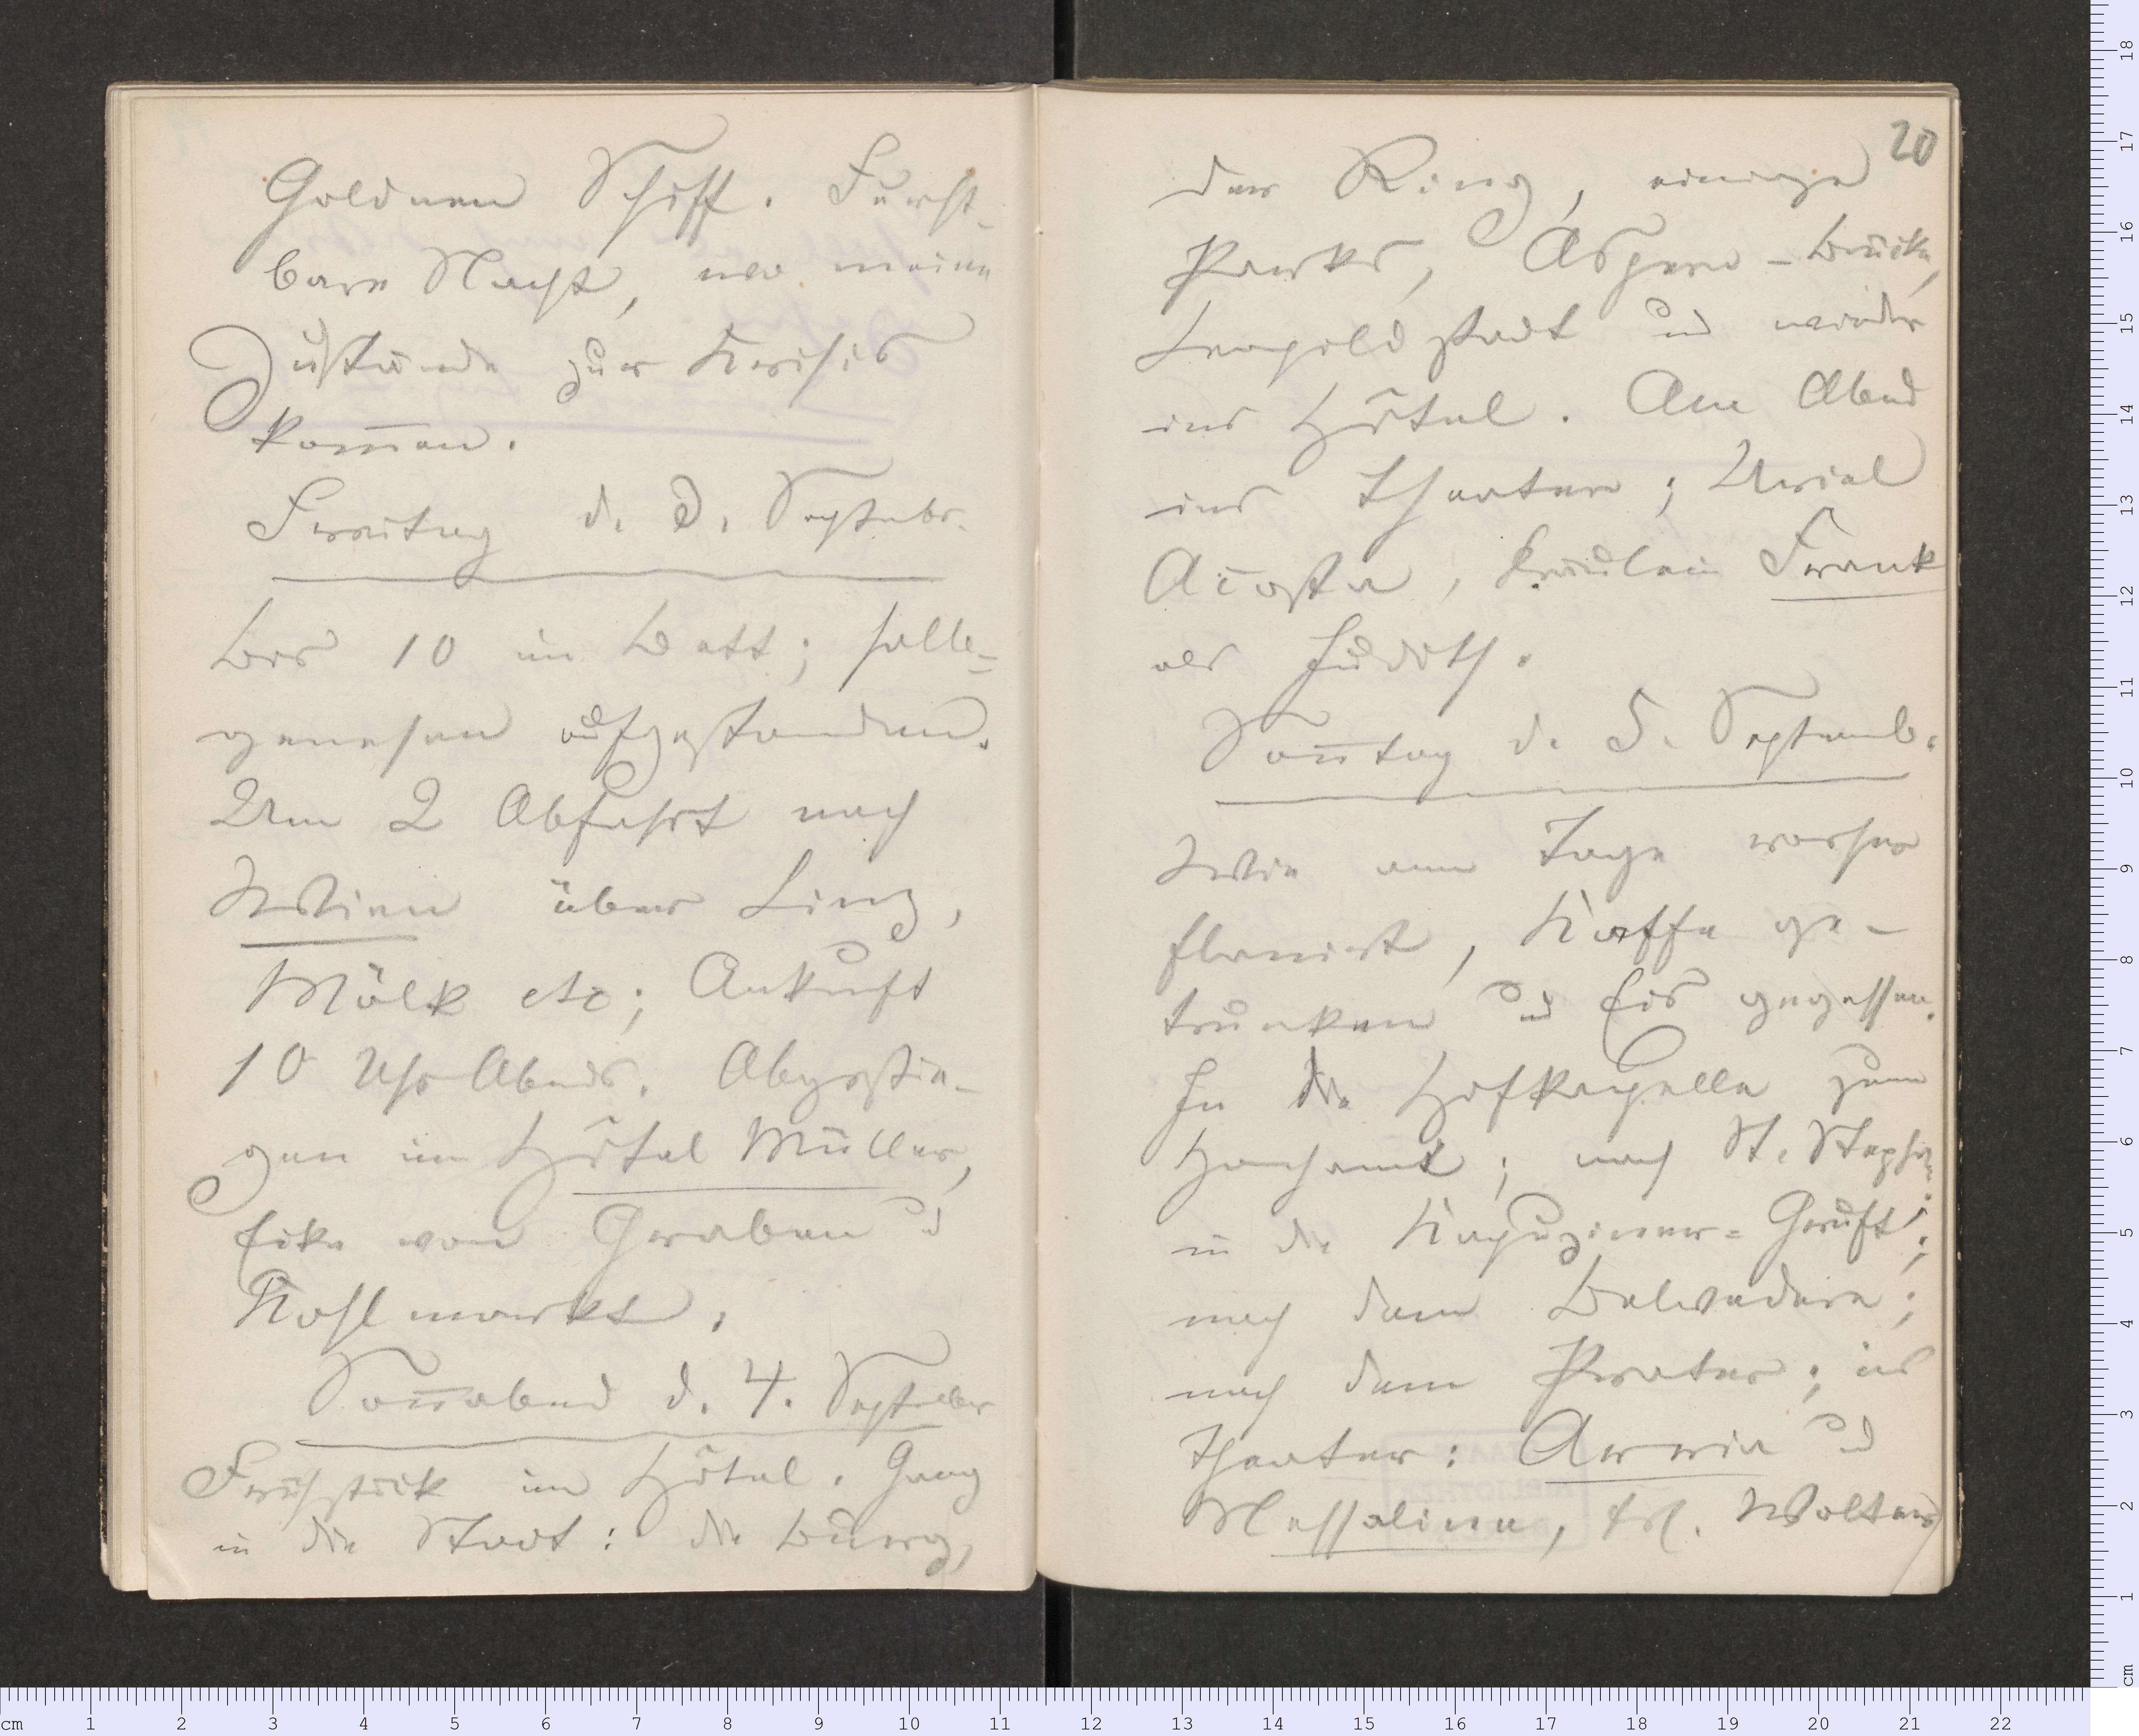 Goldnen Schiff. Furcht-
bare Nacht, wo meine
Zustände zur Krisis
kom̄en.
Freitag d. 3. Septebr.
Bis 10 im Bett; halb-
genesen aufgestanden.
Um 2 Abfahrt nach
Wien über Linz,
Mölk etc; Ankunft
10 Uhr Abends. Abgestie-
gen im Hôtel Müller,
Ecke von Graben u
Kohlmarkt.
Son̄abend d. 4. September
Frühstück im Hôtel. Gang
in die Stadt: die Burg,
20
der Ring, einige
Parks, Aspern-Brücke,
Leopoldstadt und wieder
ins Hôtel. Am Abend
ins Theater; Uriel
Acosta, Fräulein Frank
als Judith.
Son̄tag d. 5. Septemb.
Wie am Tage vorher
flanirt, Kaffe ge-
trunken und Eis gegessen.
In die Hofkapelle zum
Hochamt; nach St. Stephan;
in die Kapuziner-Gruft;
nach dem Belvedere;
nach dem Prater; ins
Theater: Arria und
Messalina, Frl. Wolter